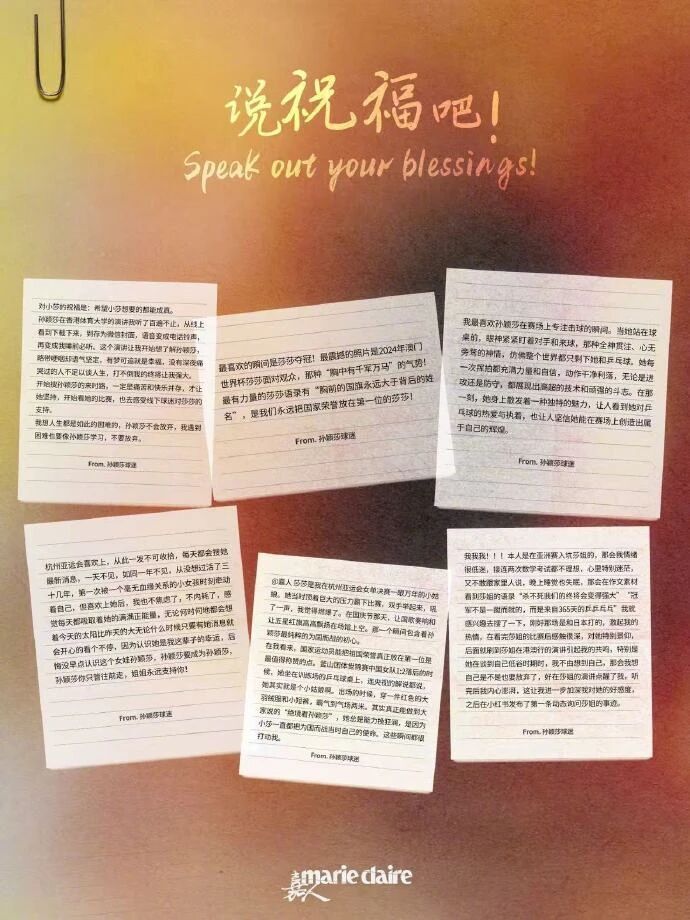 说祝福吧!
Speak out your blessings!
对小莎的祝福是：希望小莎想要的都能成真。
孙颖莎在香港体育大学的演讲我听了百遍不止，从线上
看到下载下来，到存为微信封面，语音变成电话铃声，
再变成我睡前必听。这个演讲让我开始想了解孙颖莎，
略带哽咽却语气坚定，有梦可追就是幸福，没有深夜痛
哭过的人不足以谈人生，打不倒我的终将让我强大。
开始搜孙颖莎的来时路，一定是痛苦和快乐并存，才让
她坚持，开始看她的比赛，也去感受线下球迷对莎莎的
支持。
我想人生都是如此的困难的，孙颖莎不会放弃，我遇到
困难也要像孙颖莎学习，不要放弃。
From. 孙颖莎球迷
最喜欢的瞬间是莎莎夺冠！最震撼的照片是2024年澳门
世界杯莎莎面对观众，那种“胸中有千军万马”的气势！
最有力量的莎莎语录有“胸前的国旗永远大于背后的姓
名”，是我们永远把国家荣誉放在第一位的莎莎！
From. 孙颖莎球迷
我最喜欢孙颖莎在赛场上专注击球的瞬间。当她站在球
桌前，眼神紧紧盯着对手和来球，那种全神贯注、心无
旁骛的神情，仿佛整个世界都只剩下她和乒乓球。她每
一次挥拍都充满力量和自信，动作干净利落，无论是进
攻还是防守，都展现出高超的技术和顽强的斗志。在那
一刻，她身上散发着一种独特的魅力，让人看到她对乒
乓球的热爱与执着，也让人坚信她能在赛场上创造出属
于自己的辉煌。
From. 孙颖莎球迷
杭州亚运会喜欢上，从此一发不可收拾，每天都会搜她
最新消息，一天不见，如同一年不见，从没想过活了三
十几年，第一次被一个毫无血缘关系的小女孩时刻牵动
着自己，但喜欢上她后，我也不焦虑了，不内耗了，感
觉每天都吸取着她的满满正能量，无论何时何地都会想
着今天的太阳比昨天的大无论什么时候只要有她消息就
会开心的看个不停，因为认识她是我这辈子的幸运，后
悔没早点认识这个女娃孙颖莎，孙颖莎要成为孙颖莎，
孙颖莎你只管往前走，姐姐永远支持你！
From. 孙颖莎球迷
@嘉人 莎莎是我在杭州亚运会女单决赛一眼万年的小姑
娘。她当时顶着巨大的压力赢下比赛，双手举起来，吼
了一声，我觉得燃爆了。在国庆节那天，让国歌奏响和
让五星红旗高高飘扬在场馆上空。那一个瞬间包含着孙
颖莎最纯粹的为国而战的初心。
在我看来，国家运动员能把祖国荣誉真正放在第一位是
最值得称赞的点。釜山团体世锦赛中国女队1:2落后的时
候，她坐在训练场的乒乓球桌上，连央视的解说都说，
她其实就是个小姑娘啊。出场的时候，穿一件红色的大
羽绒服和小短裤，霸气到气场两米。其实真正能做到大
家说的“绝境看孙颖莎”，她总是能力挽狂澜，是因为
小莎一直都把为国而战当时自己的使命。这些瞬间都很
打动我。
From. 孙颖莎球迷
我我我！！！本人是在亚洲赛入坑莎姐的，那会我情绪
很低迷，接连两次数学考试都不理想，心里特别迷茫，
又不敢跟家里人说，晚上睡觉也失眠，那会在作文素材
看到莎姐的语录“杀不死我们的终将会变得强大” “冠
军不是一蹴而就的，而是来自365天的乒乒乓乓”我就
感兴趣去搜了一下，刚好那场是和日本打的，激起我的
热情，在看完莎姐的比赛后感触很深，对她特别景仰，
后面就刷到莎姐在港进行的演讲引起我的共鸣，特别是
她在谈到自己低谷时期时，我不由想到自己，那会我想
自己是不是也要放弃了，好在莎姐的演讲点醒了我，听
完后我内心澎湃，这让我进一步加深我对她的好感度，
之后在小红书发布了第一条动态询问莎姐的事迹。
From. 孙颖莎球迷
嘉人 marie claire